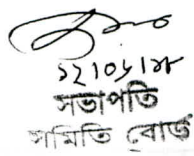 ১২/০৮/২৪
সভাপতি
সমিতি বোর্ড